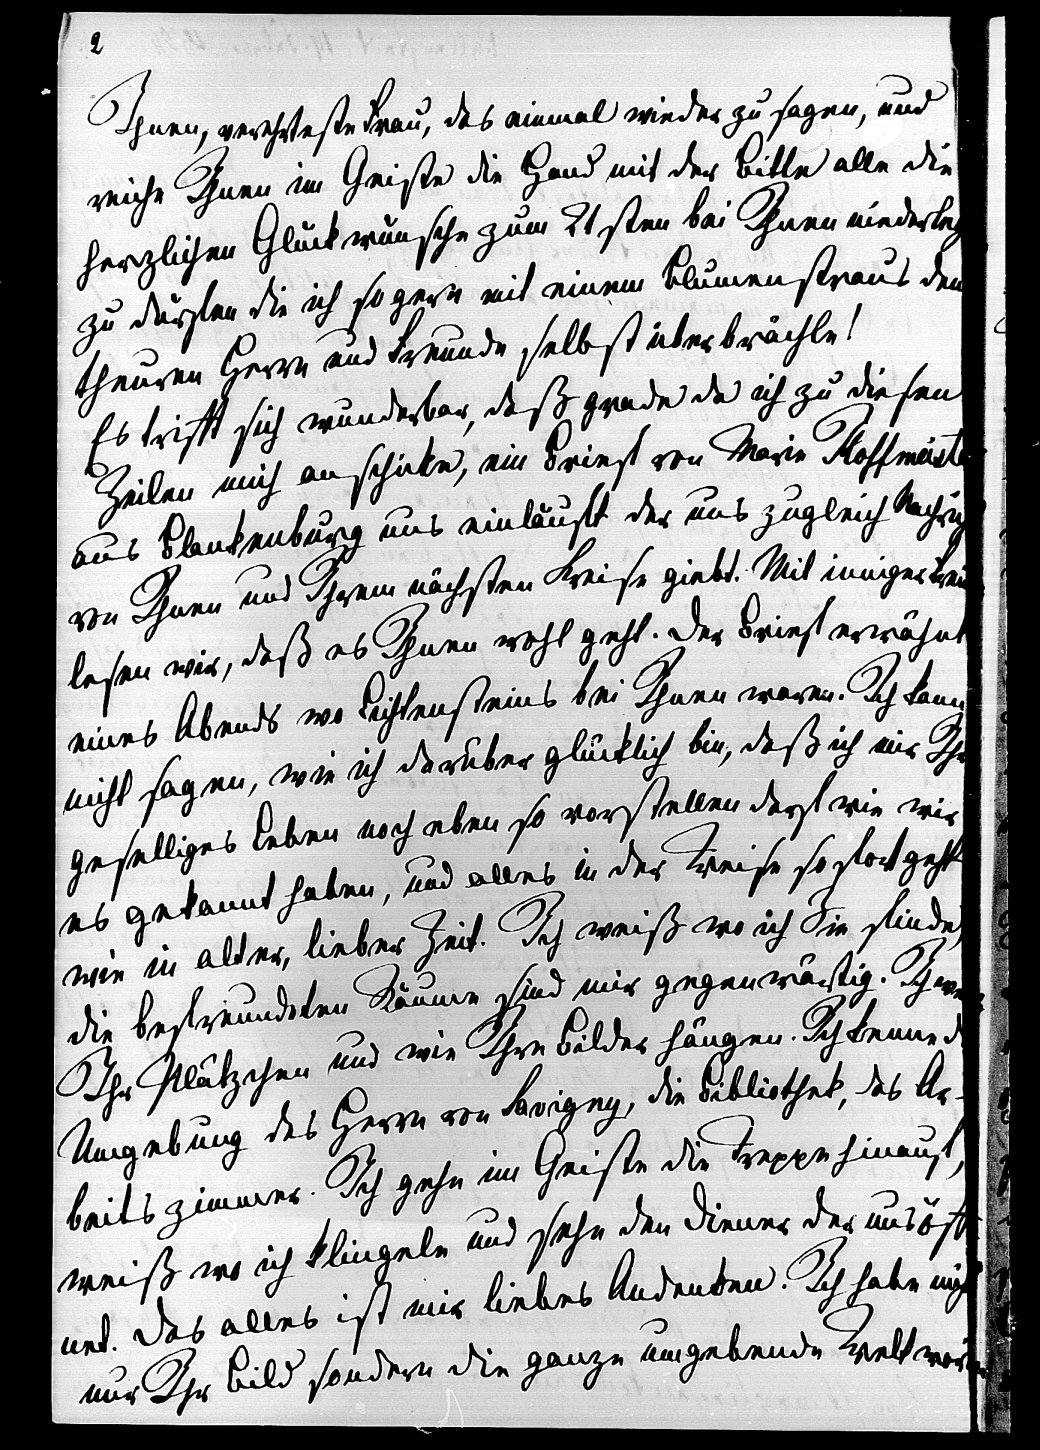 2
Ihnen, verehrteste Frau, das einmal wieder zu sagen, und
reiche Ihnen im Geiste die Hand mit der Bitte alle die
herzlichen Glückwünsche zum 21sten bei Ihnen niederleg
zu dürfen die ich so gern mit einem Blumenstraus dem
theuren Herrn und Freunde selbst überbrächte!
Es trifft sich wunderbar, daß grade da ich zu diesen
Zeilen mich anschicke, ein Brief von Marie
aus Blankenburg uns einläuft der uns zugleich Nachric
von Ihnen und Ihrem nächsten Kreise giebt. Mit inniger Freu
lesen wir, daß es Ihnen wohl geht. Der Brief erwähnt
eines Abends wo Lichtensteins bei Ihnen waren. Ich kann
nicht sagen, wie ich darüber glücklich bin, daß ich mir Ihr
geselliges Leben noch eben so vorstellen darf wie wir
es gekannt haben, und alles in der Weise so fort geht
wie in alter, lieber Zeit. Ich weiß wo ich Sie finde,
die befreundeten Räume sind mir gegenwärtig. Ich
Ihr Plätzchen und wie Ihre Bilder hängen. Ich kenne d
Umgebung des Herrn von Savigny, die Bibliothek, das Ar-
beitszimmer. Ich gehe im Geiste die Treppe hinauf,
weiß wo ich klingele und sehe den Diener der uns öff-
net. Das alles ist mir liebes Andenken. Ich habe nich
nur Ihr Bild sondern die ganze umgebende Welt